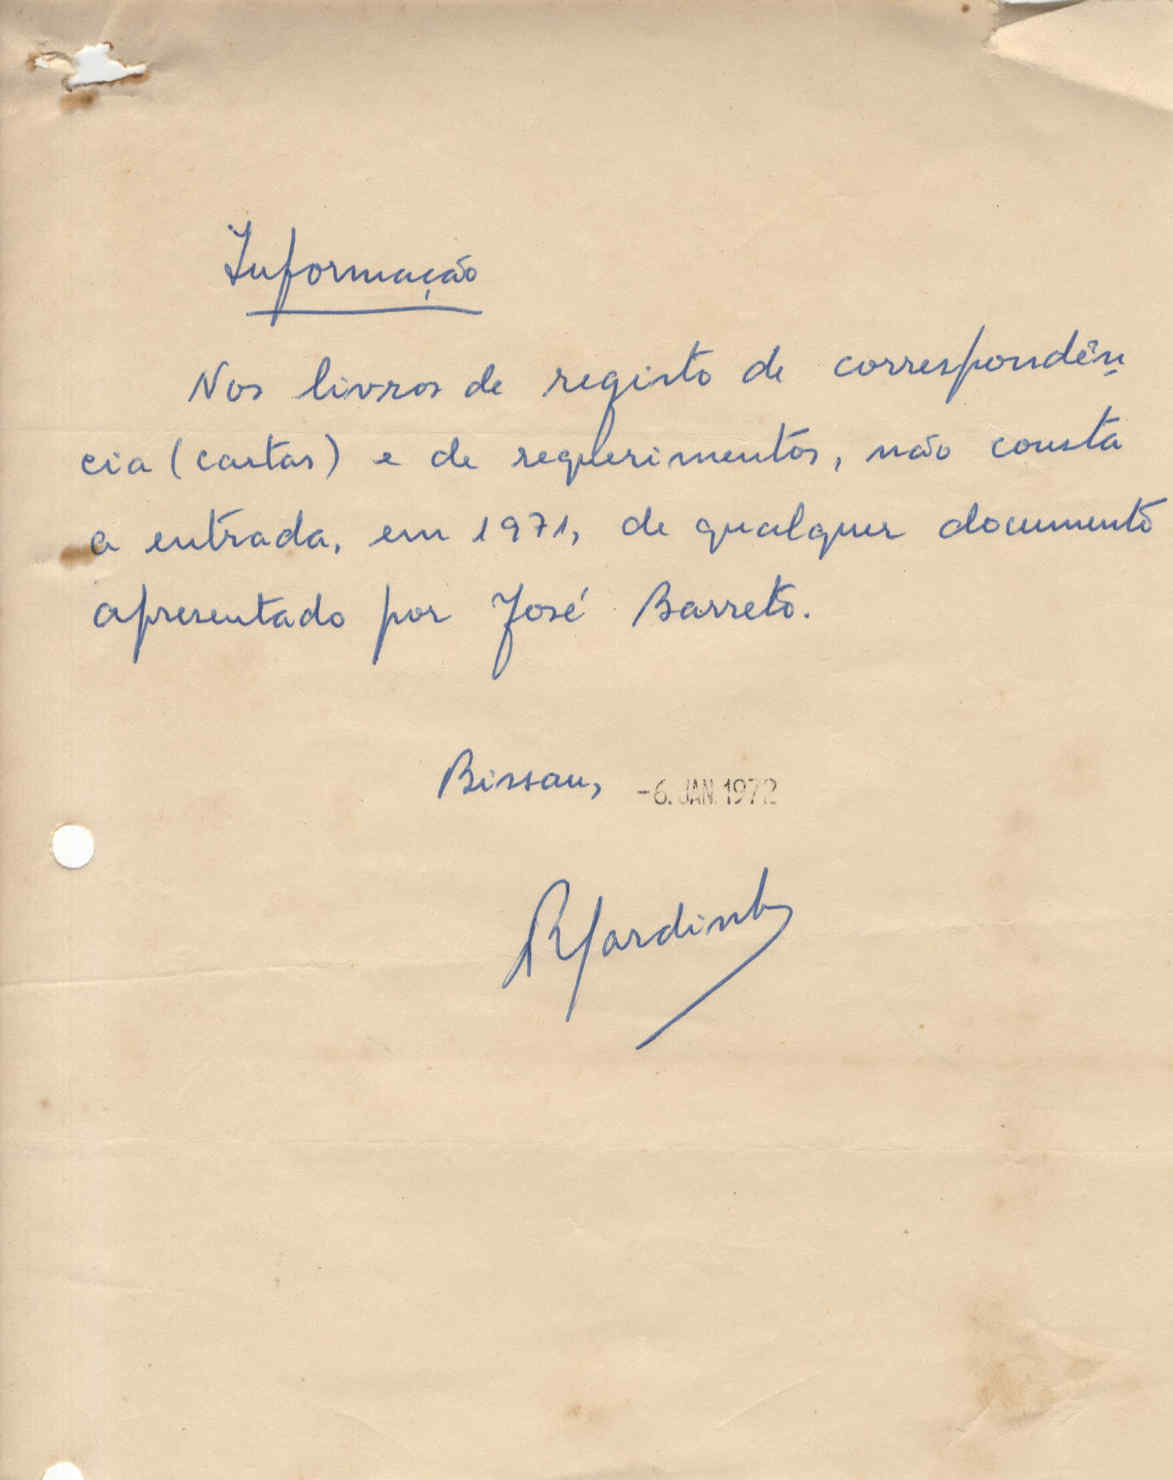 Informação
Nos livros de registo de correspondên
cia (cartas) e de requerimentos, não consta
a entrada, em 1971, de qualquer documento
apresentado por José Barreto.
Bissau, -6. JAN. 1972